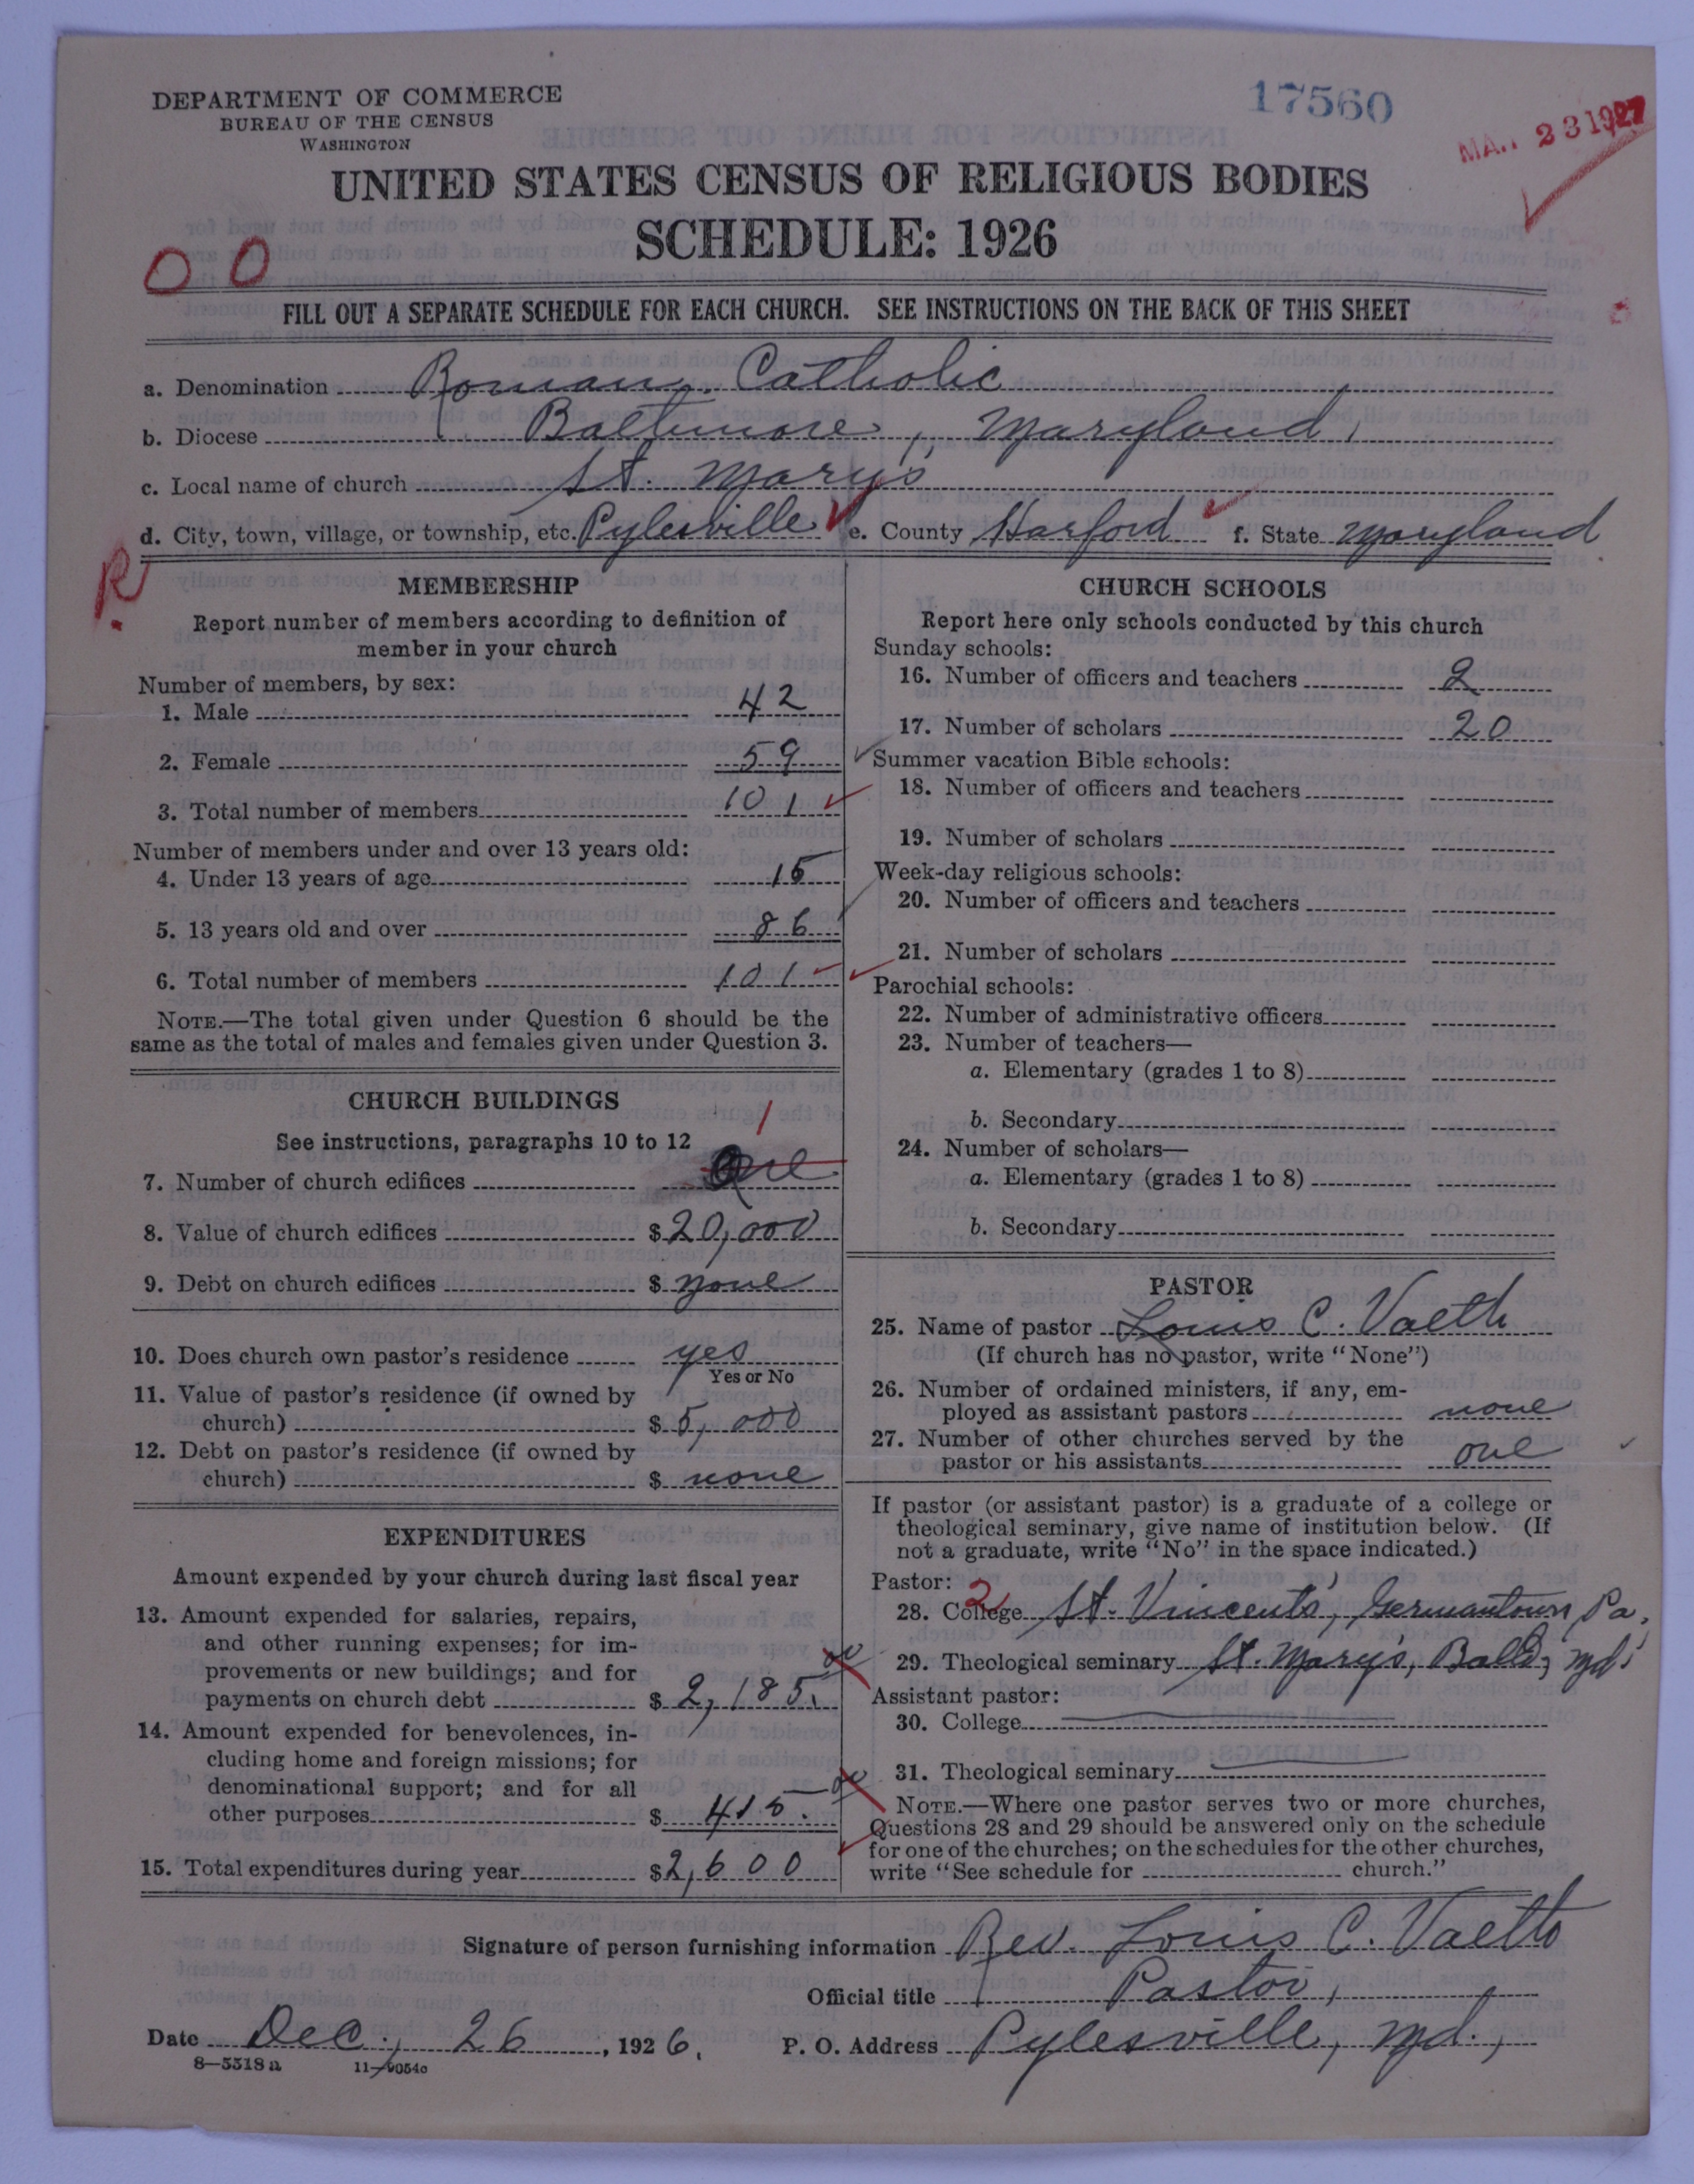 DEPARTMENT OF COMMERCE
BUREAU OF THE CENSUS
WASHINGTON
17560
23 1927
UNITED STATES CENSUS OF RELIGIOUS BODIES
SCHEDULE: 1926
O O
FILL OUT A SEPARATE SCHEDULE FOR EACH CHURCH. SEE INSTRUCTIONS ON THE BACK OF THIS SHEET
a. Denomination Roman Catholic
b. Diocese Baltimore, Maryland,
c. Local name of church St. Mary's
d. City, town, village, or township, etc. Pylesville e. County Harford f. State Maryland
R
MEMBERSHIP
Report number of members according to definition of
member in your church
Number of members, by sex:
1. Male 42
2. Female 59
3. Total number of members 101
Number of members under and over 13 years old:
4. Under 13 years of age 15
5. 13 years old and over 86
6. Total number of members 101
NOTE.—The total given under Question 6 should be the
same as the total of males and females given under Question 3.
CHURCH BUILDINGS
See instructions, paragraphs 10 to 12
1
7. Number of church edifices One
8. Value of church edifices $ 20,000
9. Debt on church edifices $ none
10. Does church own pastor's residence yes
Yes or No
11. Value of pastor's residence (if owned by
church) $ 5,000
12. Debt on pastor's residence (if owned by
church) $ none
EXPENDITURES
Amount expended by your church during last fiscal year
13. Amount expended for salaries, repairs,
and other running expenses; for im-
provements or new buildings; and for
payments on church debt $ 2,185. 00
14. Amount expended for benevolences, in-
cluding home and foreign missions; for
denominational support; and for all
other purposes $ 415. 00
15. Total expenditures during year $ 2,600
CHURCH SCHOOLS
Report here only schools conducted by this church
Sunday schools:
16. Number of officers and teachers 2
17. Number of scholars 20
Summer vacation Bible schools:
18. Number of officers and teachers
19. Number of scholars
Week-day religious schools:
20. Number of officers and teachers
21. Number of scholars
Parochial schools:
22. Number of administrative officers
23. Number of teachers—
a. Elementary (grades 1 to 8)
b. Secondary
24. Number of scholars—
a. Elementary (grades 1 to 8)
b. Secondary
PASTOR
25. Name of pastor Louis C. Vaeth
(If church has no pastor, write "None")
26. Number of ordained ministers, if any, em-
ployed as assistant pastors none
27. Number of other churches served by the
pastor or his assistants one
If pastor (or assistant pastor) is a graduate of a college or
theological seminary, give name of institution below. (If
not a graduate, write "No" in the space indicated.)
Pastor: 2
28. College St. Vincent's, Germantown, Pa.
29. Theological seminary St. Mary's, Balto, Md.
Assistant pastor:
30. College
31. Theological seminary
NOTE.—Where one pastor serves two or more churches,
Questions 28 and 29 should be answered only on the schedule
for one of the churches; on the schedules for the other churches,
write "See schedule for church."
Signature of person furnishing information Rev. Louis C. Vaeth
Official title Pastor,
Date Dec., 26, 1926. P. O. Address Pylesville, Md.,
8—5518 a 11—9054c